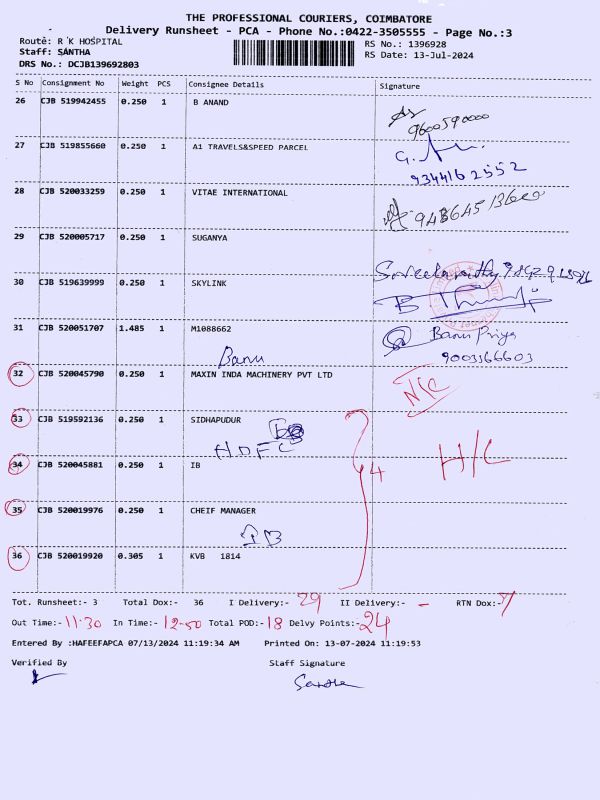 THE PROFESSIONAL COURIERS, COIMBATORE
Delivery Runsheet - PCA - Phone No.:0422-3505555 - Page No.:3
Route: R K HOSPITAL
Staff: SANTHA
DRS No.: DCJB139692803
RS No.: 1396928
RS Date: 13-Jul-2024
S No Consignment No Weight PCS Consignee Details Signature
26 CJB 519942455 0.250 1 B ANAND
9600590000
27 CJB 519855660 0.250 1 A1 TRAVELS&SPEED PARCEL
9344162552
28 CJB 520033259 0.250 1 VITAE INTERNATIONAL
29 CJB 520005717 0.250 1 SUGANYA
30 CJB 519639999 0.250 1 SKYLINK
31 CJB 520051707 1.485 1 M1088662
Banu Priya
Banu 9003366603
32 CJB 520045790 0.250 1 MAXIN INDA MACHINERY PVT LTD
N/C
33 CJB 519592136 0.250 1 SIDHAPUDUR
HDFC
H/C
34 CJB 520045881 0.250 1 IB
4
35 CJB 520019976 0.250 1 CHEIF MANAGER
IB
36 CJB 520019920 0.305 1 KVB 1814
Tot. Runsheet:- 3 Total Dox:- 36 I Delivery:- 29 II Delivery:- - RTN Dox:- 7
Out Time:- 11.30 In Time:- 12-50 Total POD:- 18 Delvy Points:- 24
Entered By :HAFEEFAPCA 07/13/2024 11:19:34 AM Printed On: 13-07-2024 11:19:53
Verified By Staff Signature
Santha